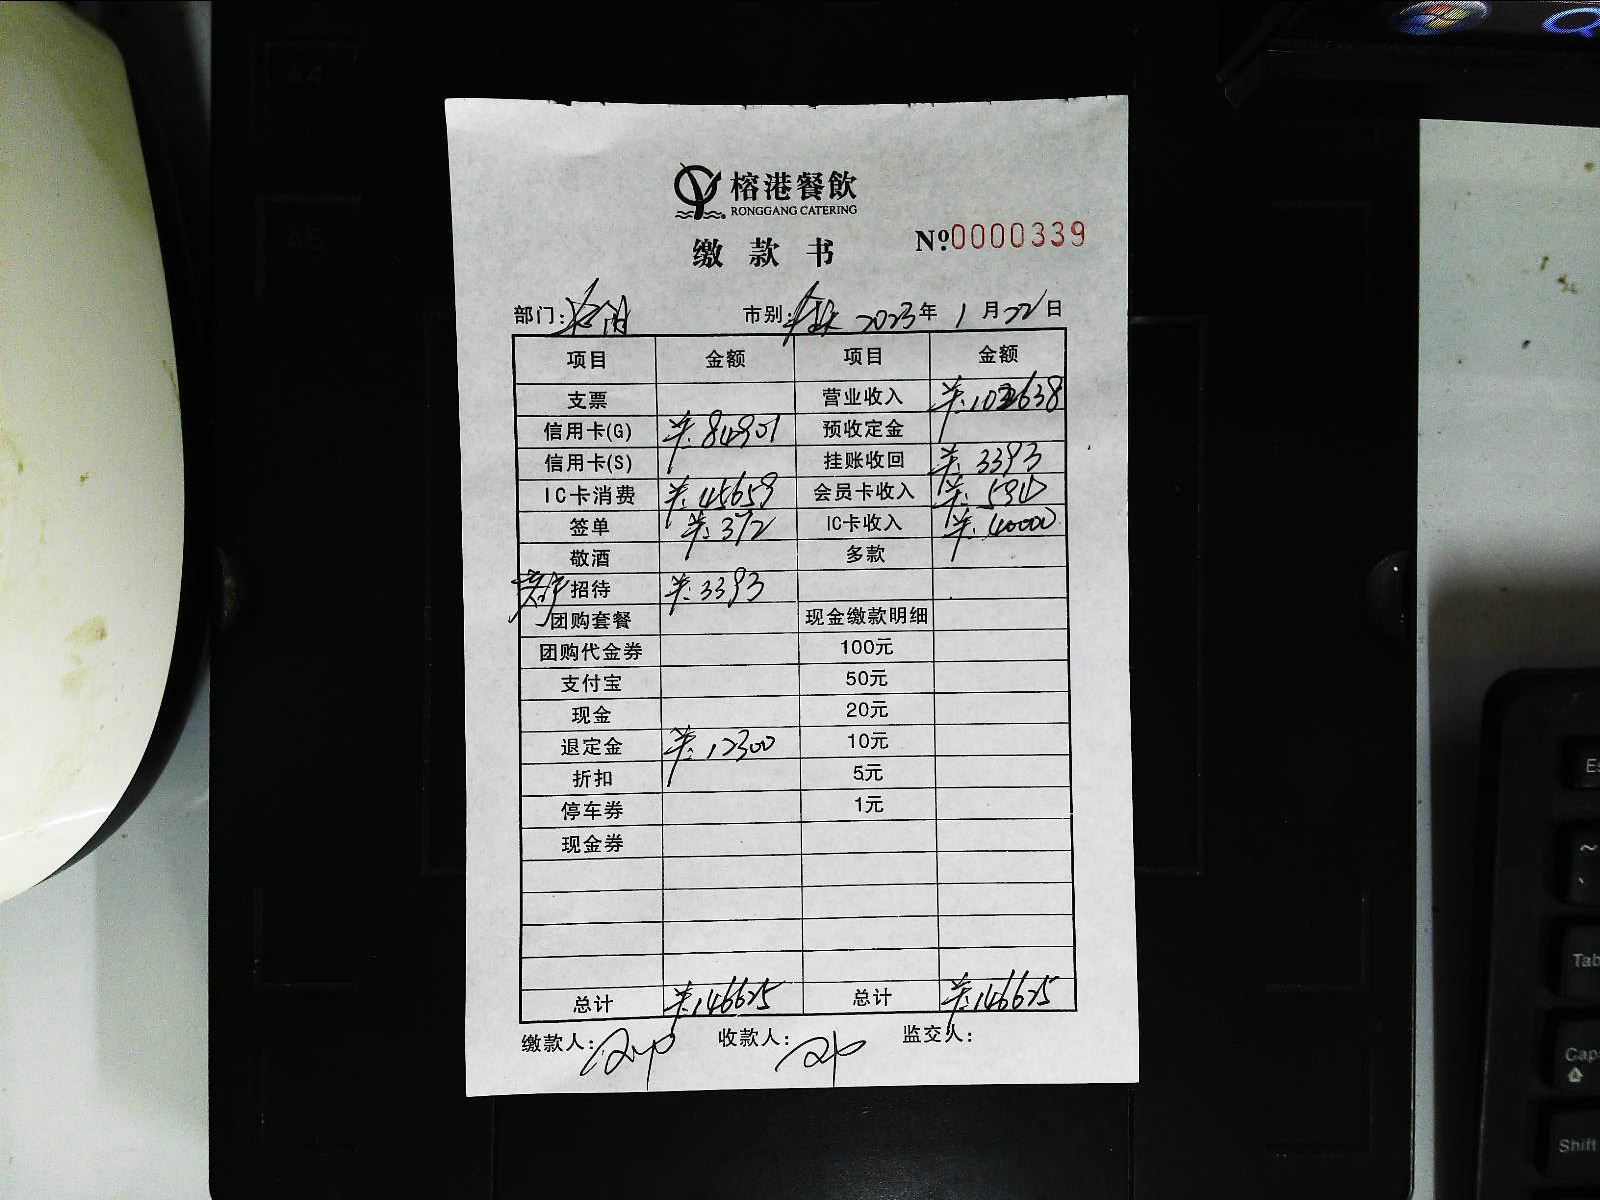 A4
A5
榕港餐飲
RONGGANG CATERING
缴款书
Nº 0000339
部门: 市别: 2023年1月22日
项目 金额 项目 金额
支票 营业收入 ¥:102638
信用卡(G) ¥:84901 预收定金
信用卡(S) 挂账收回 ¥:3393
IC卡消费 ¥:45659 会员卡收入 ¥:594
签单 ¥:372 IC卡收入 ¥:40000
敬酒 多款
招待 ¥:3393
团购套餐 现金缴款明细
团购代金券 100元
支付宝 50元
现金 20元
退定金 ¥:12300 10元
折扣 5元
停车券 1元
现金券
总计 ¥:146625 总计 ¥:146625
缴款人: 收款人: 监交人:
Es
~
Tab
Cap
Shift